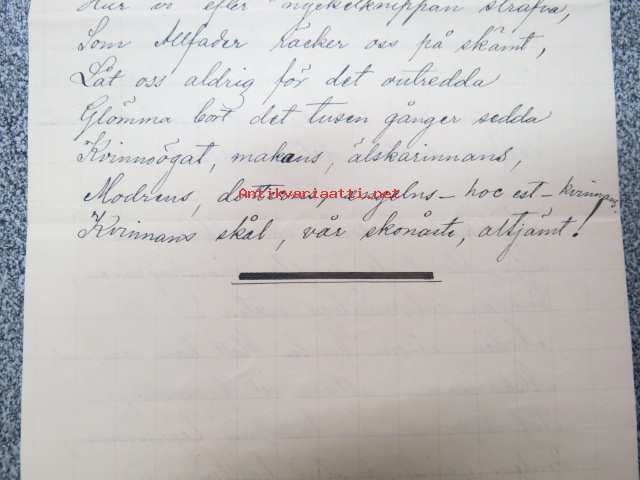 Hur vi efter nyckelknippan sträfva,
Som Allfader räcker oss på skämt,
Låt oss aldrig för det outredda
Glömma bort det tusen gånger sedda
Kvinnoögat, makans, älskarinnans,
Modrens, dottrens, engelns – hoc est – kvinnans!
Antikvariaatti.net
Kvinnans skål, vår skönaste, alltjämt!